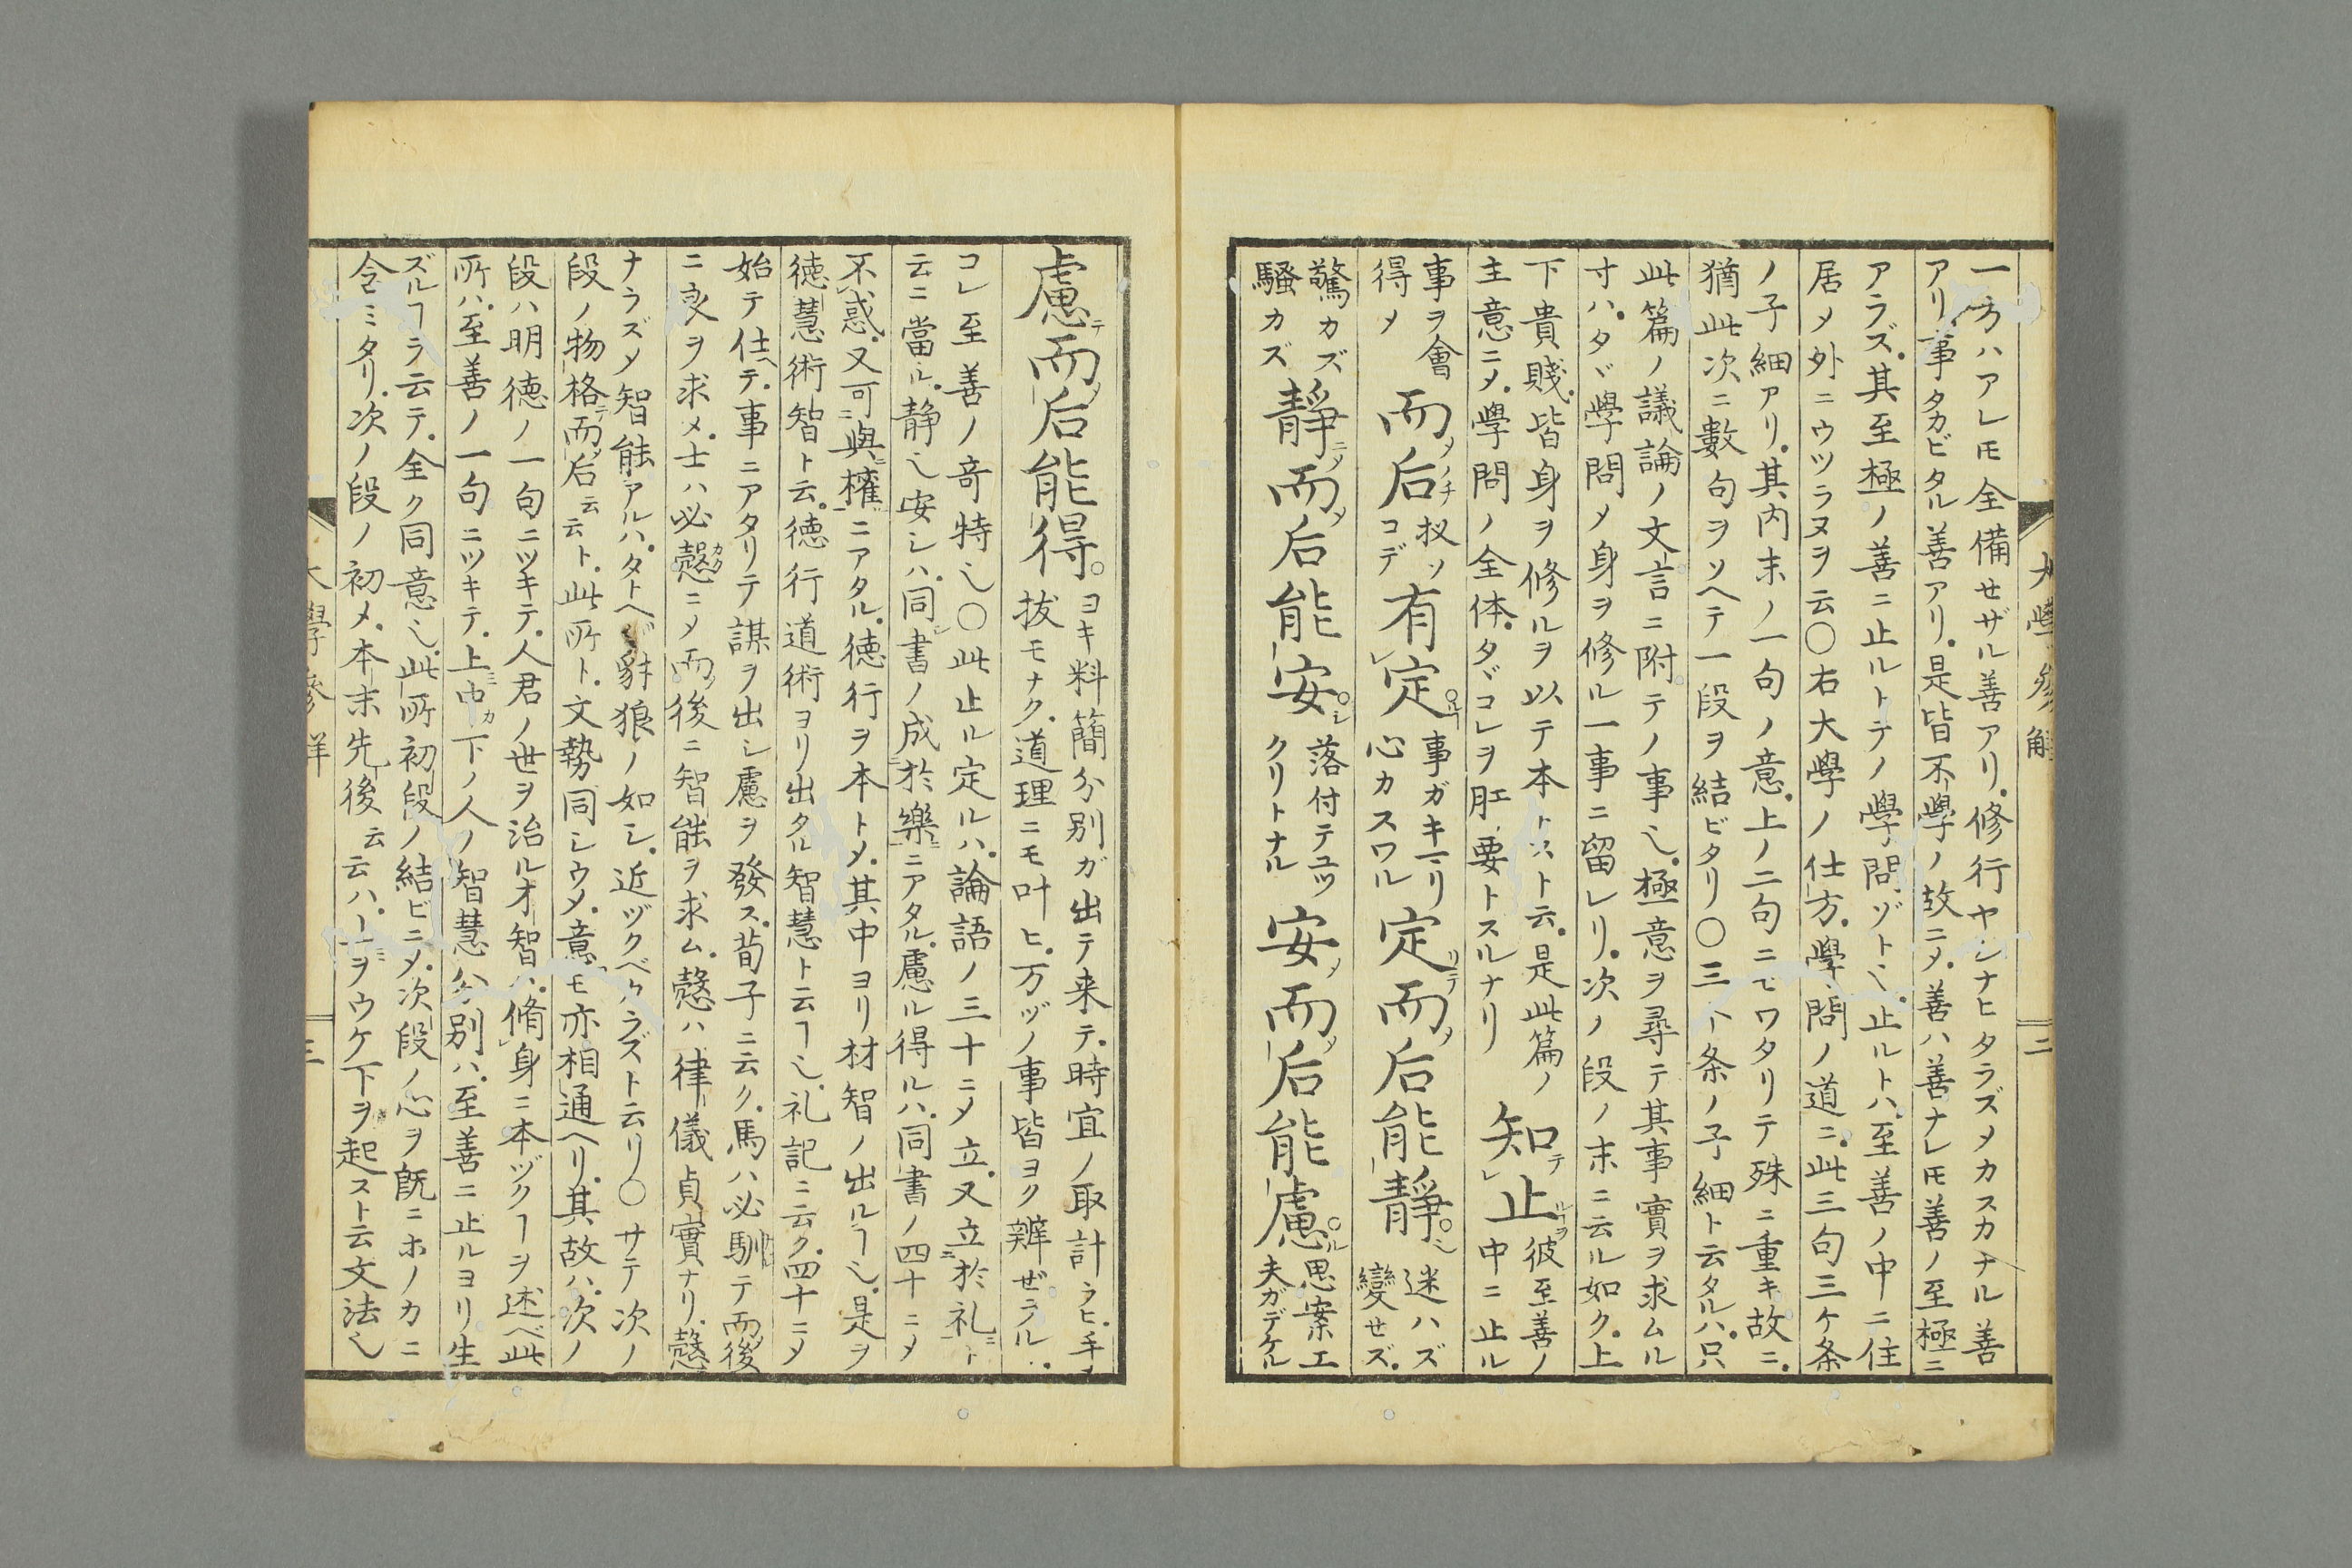 大學參解
二
一方ハアレ𪜈全備セザル善アリ修行ヤシナヒタラズ〆カスカナル善
アリ事タカビタル善アリ是皆不學ノ故ニ〆善ハ善ナレ𪜈善ノ至極ニ
アラズ其至極ノ善ニ止ルトテノ學問ゾト也止ルトハ至善ノ中ニ住
居〆外ニウツラヌヲ云○右大學ノ仕方學問ノ道ニ此三句三ケ条
ノ子細アリ其内末ノ一句ノ意上ノ二句ニモワタリテ殊ニ重キ故ニ
猶此次ニ數句ヲソヘテ一段ヲ結ビタリ○三ケ条ノ子細ト云タルハ只
此篇ノ議論ノ文言ニ附テノ事也極意ヲ尋テ其事實ヲ求ムル
寸ハタヾ學問〆身ヲ修ル一事ニ留レリ次ノ段ノ末ニ云ル如ク上
下貴賤皆身ヲ修ルヲ以テ本トストト云是此篇ノ
主意ニ〆學問ノ全体タヾコレヲ肛要トスルナリ
知テ止ルヿヲ彼至善ノ中ニ止ル
事ヲ會得〆而〆后ノチ扨ソコデ有定ヿ事ガキマリ心カスワル定テ而〆后能靜ニ迷ハズ變セズ
驚カズ騒カズ靜ニ〆而〆后能安シ落付テユツクリトナル安〆而〆后能慮ル思案工夫ガデケル
慮テ而〆后能得ヨキ料簡分別ガ出テ来テ時宜ノ取計ラヒ手ヌ
拔モナク道理ニモ叶ヒ万ヅノ事皆ヨク辨ゼラル
コレ至善ノ竒特也○此止ル定ルハ論語ノ三十ニ〆立又立於礼ニト
云ニ當ル静也安シハ同書ノ成於樂ニアタル慮ル得ルハ同書ノ四十ニ〆
不惑又可與權ニアタル徳行ヲ本ト〆其中ヨリ材智ノ出ルヿ也是ヲ
徳慧術智ト云徳行道術ヨリ出タル智慧ト云ヿ也礼記ニ云ク四十ニ〆
始テ仕ヘテ事ニアタリテ謀ヲ出シ慮ヲ發ス荀子ニ云ク馬ハ必馴テ而後
ニ良ヲ求メ士ハ必愨ニ〆而〆後ニ智能ヲ求ム愨ハ律儀貞實ナリ愨
ナラズ〆智能アルハタトヘバ豺狼ノ如シ近ヅクベカラズト云リ○サテ次ノ
段ノ物格テ而〆后云云ト此所ト文勢同シウ〆意モ亦相通ヘリ其故ハ次ノ
段ハ明徳ノ一句ニツキテ人君ノ世ヲ治ル才智ハ脩身ニ本ヅクヿヲ述ベ此
所ハ至善ノ一句ニツキテ上ミ中カ下ノ人ノ智慧分別ハ至善ニ止ルヨリ生
ズルヿヲ云テ全ク同意也此所初段ノ結ビニ〆次段ノ心ヲ既ニホノカニ
含ミタリ次ノ段ノ初メ本末先後云云ハ上ミヲウケ下ヲ起スト云文法也
大學參解
三